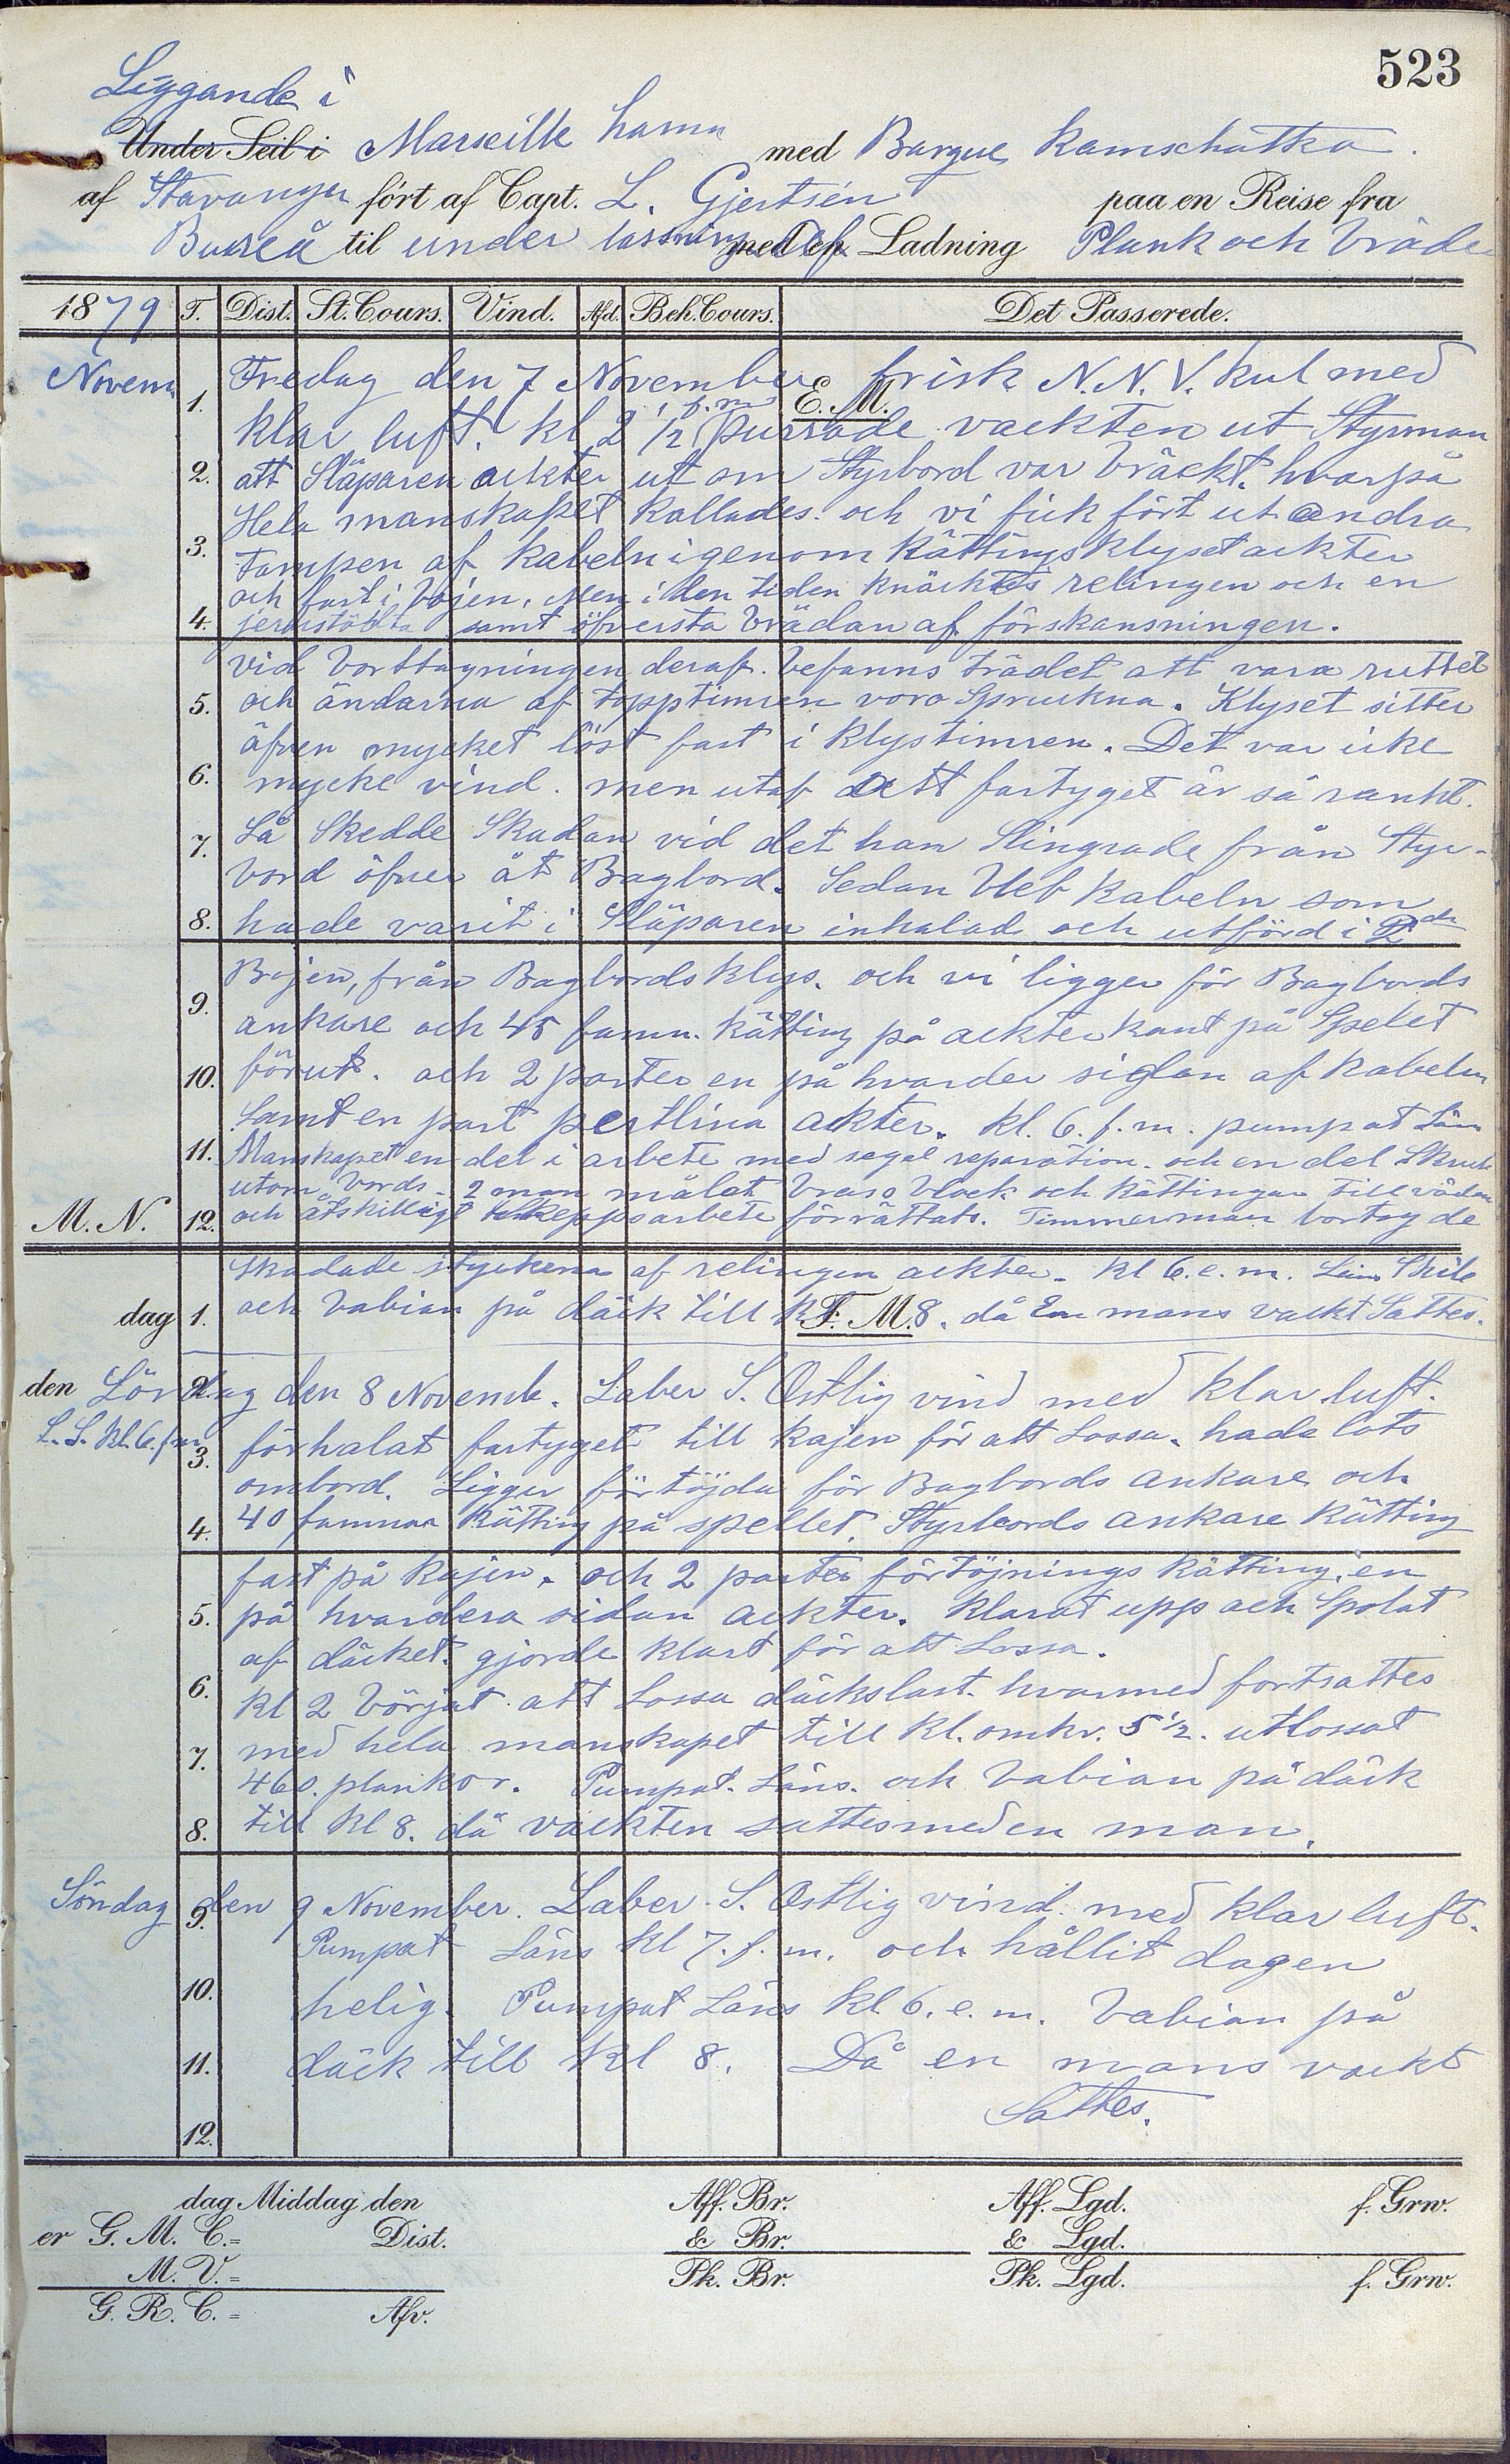 523
Liggande i
Under Seil i Marseille hamn med Barque Kamschatka.
af Stavanger fört af Capt. L. Gjertsén paa en Reise fra
Bureå til under lossning af med en Ladning Plank och bräder
1879 T. Dist. St. Cours. Vind. Afd. Beh. Cours. Det Passerede.
Novem. Fredag den 7 November frisk N.N.V. kul med
1. E. M.
klar luft. kl 2 1/2 f.m. purrade vackten ut Styrman
2. att Släparen ackter ut om Styrbord var bräckt. hvarpå
Hela manskapet kallades. och vi fick fört ut andra
3. tampen af kabeln igenom Kättingsklyset ackter
och fast i bojen. Men i den tiden knäcktes relingen och en
4. jernstötta samt öfversta brädan af förskansningen.
vid borttagningen deraf. befanns trädet att vara ruttet
5. och ändarna af topptimren voro Spruckna. Klyset sitter
äfven mycket löst fast i Klystimren. Det var icke
6. mycke vind. men utaf att fartyget är så rankt.
7. Så Skedde Skadan vid det han Slingrade från Styr-
bord öfver åt Bagbord. Sedan bleb kabeln som
8. hade varit i Släparen inhalad och utförd i 2dr
Bojen, från Bagbords klys. och vi ligger för Bagbords
9. ankare och 45 famn. Kätting på ackter kant på Spelet
10. förut. och 2 parter en på hvarder sidan af kabeln
Samt en part pertlina ackter. kl. 6. f.m. pumpat Läns
11. Manskapet en del i arbete med segel reparation. och en del
utom bords. 2 man målat brass block och kättingar till rådan
M. N. 12. och åtskilligt skeppsarbete förrättats. Timmerman bortog de
Skadade styckena af relingen ackter. kl 6. e. m. Läns
dag 1. och babian på däck till kl 8. då En mans vackt Sattes.
F. M.
den Lördag den 8 Novemb. Laber S. Ostlig vind med klar luft.
2.
L. S. kl. 6. f.m
3. förhalat fartyget till kajen för att Lossa. hade lots
ombord. Ligger förtöjda för Bagbords ankare och
4. 40 famnar Kätting på spellet. Styrbords ankare Kätting
fast på kajen. och 2 parter förtöjnings Kätting. en
5. på hvardera sidan ackter. klarat upp och Spolat
af däcket. gjorde klart för att Lossa.
6. kl 2 börjat att Lossa däckslast. hvarmed fortsattes
7. med hela manskapet till kl. omkr. 5 1/2. utlossat
460. plankor. Pumpat. Läns. och babian på däck
8. till kl 8. då vackten sattes med en man.
Söndag den 9 November. Laber S. Ostlig vind. med klar luft.
9.
Pumpat Läns kl 7. f. m. och hållit dagen
10. helig. Pumpat Läns kl 6. e. m. babian på
11. däck till kl 8. Då en mans vackt
Sattes.
12.
dag Middag den Aff. Br. Aff. Lgd. f. Grw.
er G. M. C.= Dist. & Br. & Lgd.
M. V.= Pk. Br. Pk. Lgd. f. Grw.
G. R. C. = Afv.